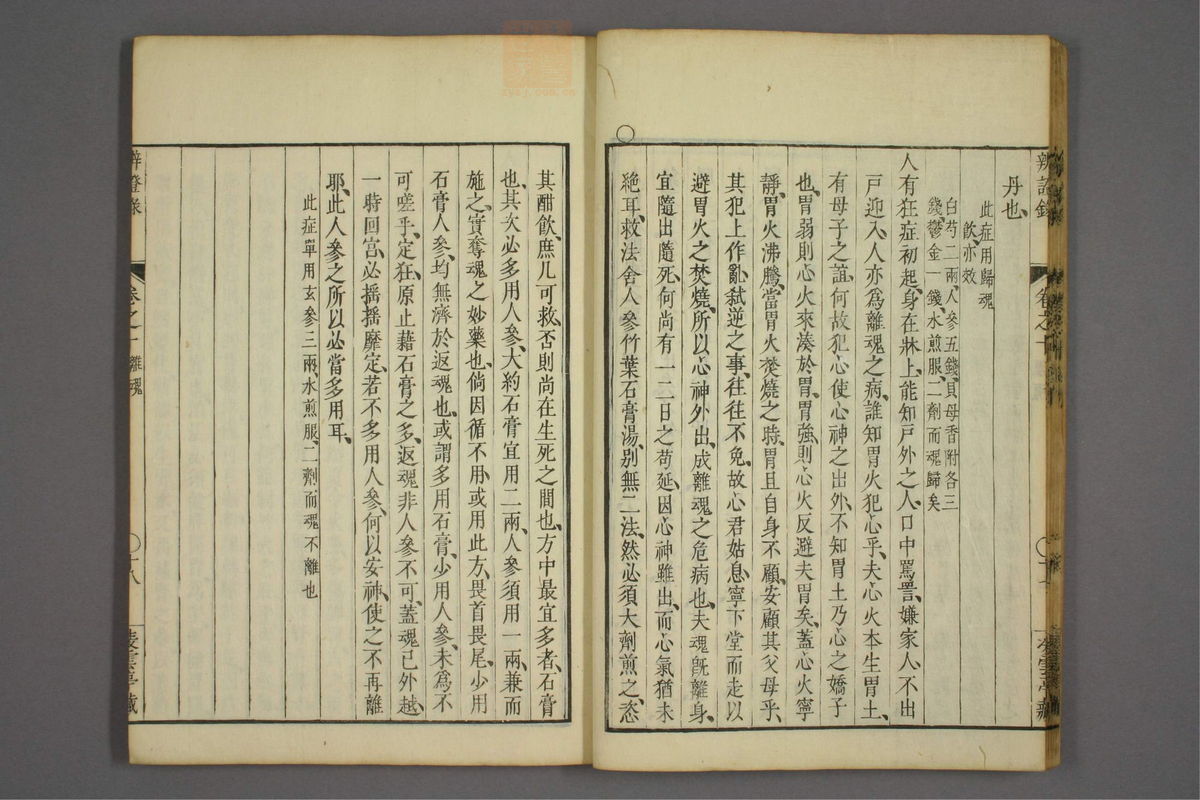 辨證錄
卷之十
丹也、
此症用歸魂
飲、亦效
白芍二兩、人參五錢、貝母香附各三
錢、鬱金一錢、水煎服、二劑而魂歸矣
人有狂症初起、身在牀上、能知戶外之人、口中罵詈、嫌家人、不出
戸迎入、人亦爲離魂之病、誰知胃火犯心乎、夫心火本生胃土、
有母子之誼、何故犯心、使心神之出外、不知胃土乃心之嬌子
也、胃弱則心火來湊於胃、胃強則心火反避夫胃矣、蓋心火寧
靜、胃火沸騰、當胃火焚燒之時、胃且自身不顧、安顧其父母乎、
其犯上作亂、弒逆之事、往往不免、故心君姑息、寧下堂而走以
避胃火之焚燒、所以心神外出、成離魂之危病也、夫魂旣離身、
宜隨出隨死、何尚有一二日之苟延、因心神雖出、而心氣猶未
絕耳、救法舍人參竹葉石膏湯、別無二法、然必須大劑煎之、恣
其酣飲、庶几可救、否則尚在生死之間也、方中最宜多者、石膏
也、其次必多用人參、大約石膏宜用二兩、人參須用一兩、兼而
施之、實奪魂之妙藥也、倘因循不用、或用此方、畏首畏尾、少用
石膏人參、均無濟於返魂也、或謂多用石膏、少用人參、未爲不
可嗟乎、定狂、原止藉石膏之多、返魂非人參不可、蓋魂已外越、
一時回宫、必揺揺靡定、若不多用人參、何以安神、使之不再離
耶、此人參之所以必當多用耳、
此症單用玄參三兩、水煎服、二劑而魂不離也
辨證錄
卷之十
離魂
十八